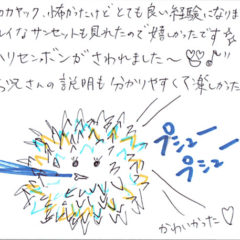 カヤック、怖かったけどとても良い経験になりま
レイなサンセットも見れたので嬉しかったです
ハリセンボンがさわれました〜
さんの説明も分かりやすくて楽しかった
プシュー
プシュー
かわいかった